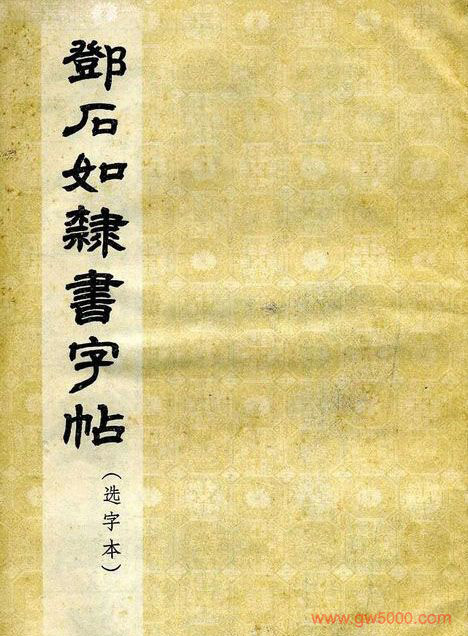 鄧石如隸書字帖
（选字本）
www.gw5000.com